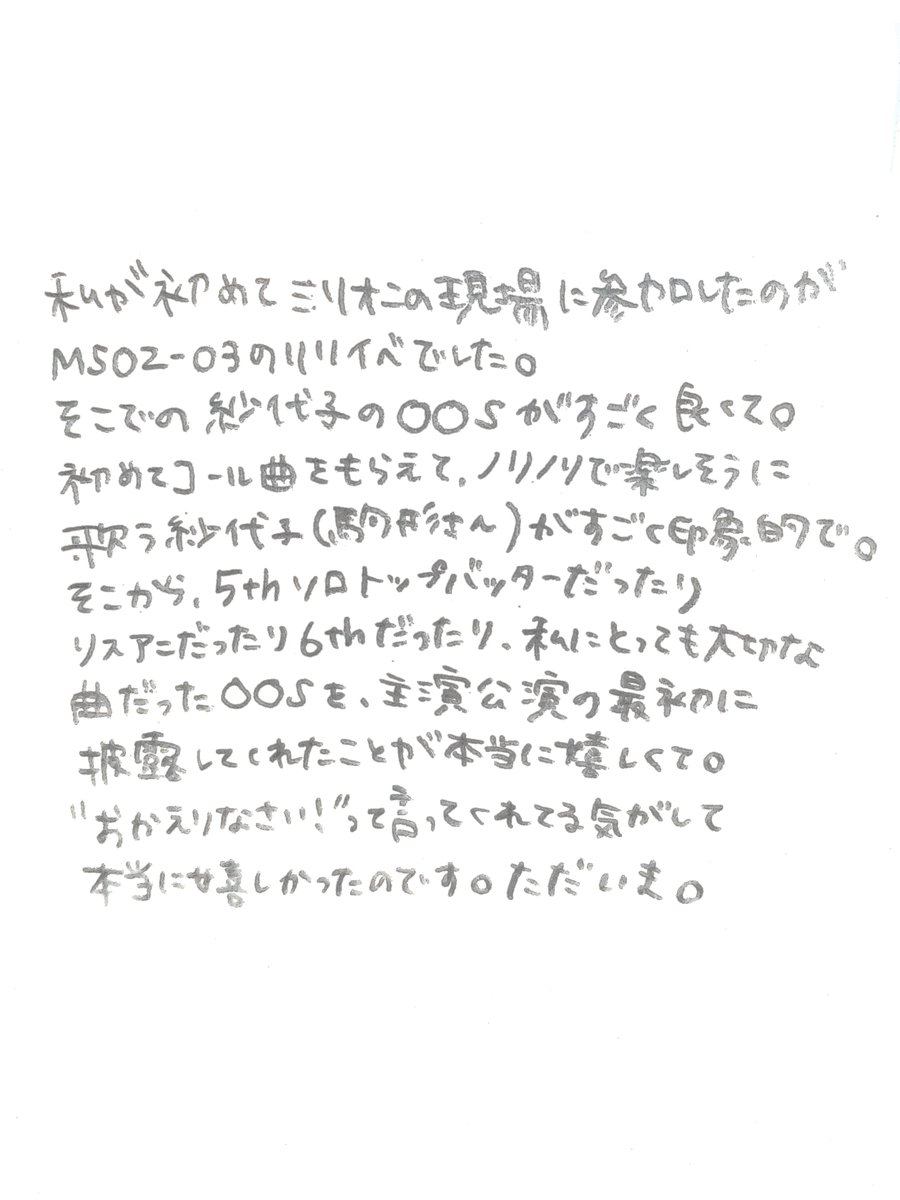 私が初めてミリオンの現場に参加したのが
MS02-03のリリイベでした。
そこでの紗代子のOOSがすごく良くて。
初めてコール曲をもらえて、ノリノリで楽しそうに
歌う紗代子(駒形さん)がすごく印象的で。
そこから、5thソロトップバッターだったり
リスアニだったり6thだったり、私にとっても大切な
曲だったOOSを、主演公演の最初に
披露してくれたことが本当に嬉しくて。
"おかえりなさい！"って言ってくれてる気がして
本当に嬉しかったのです。ただいま。